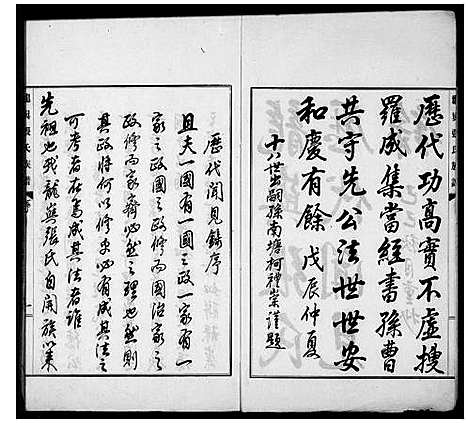 歷代功高實不虛搜
羅成集當經書孫曹
共守先公法世世安
和慶有餘 戊辰仲夏
十八世出嗣孫南塘柯禮崇謹題
歷代聞見錄序
且夫一國有一國之政一家有一
家之政國之政修而國治家之
政修而家齊必然之理也然則
其政將何以修乎必有成其法之
可考者在焉成其法者誰
先祖也我龍與張氏自開族以來